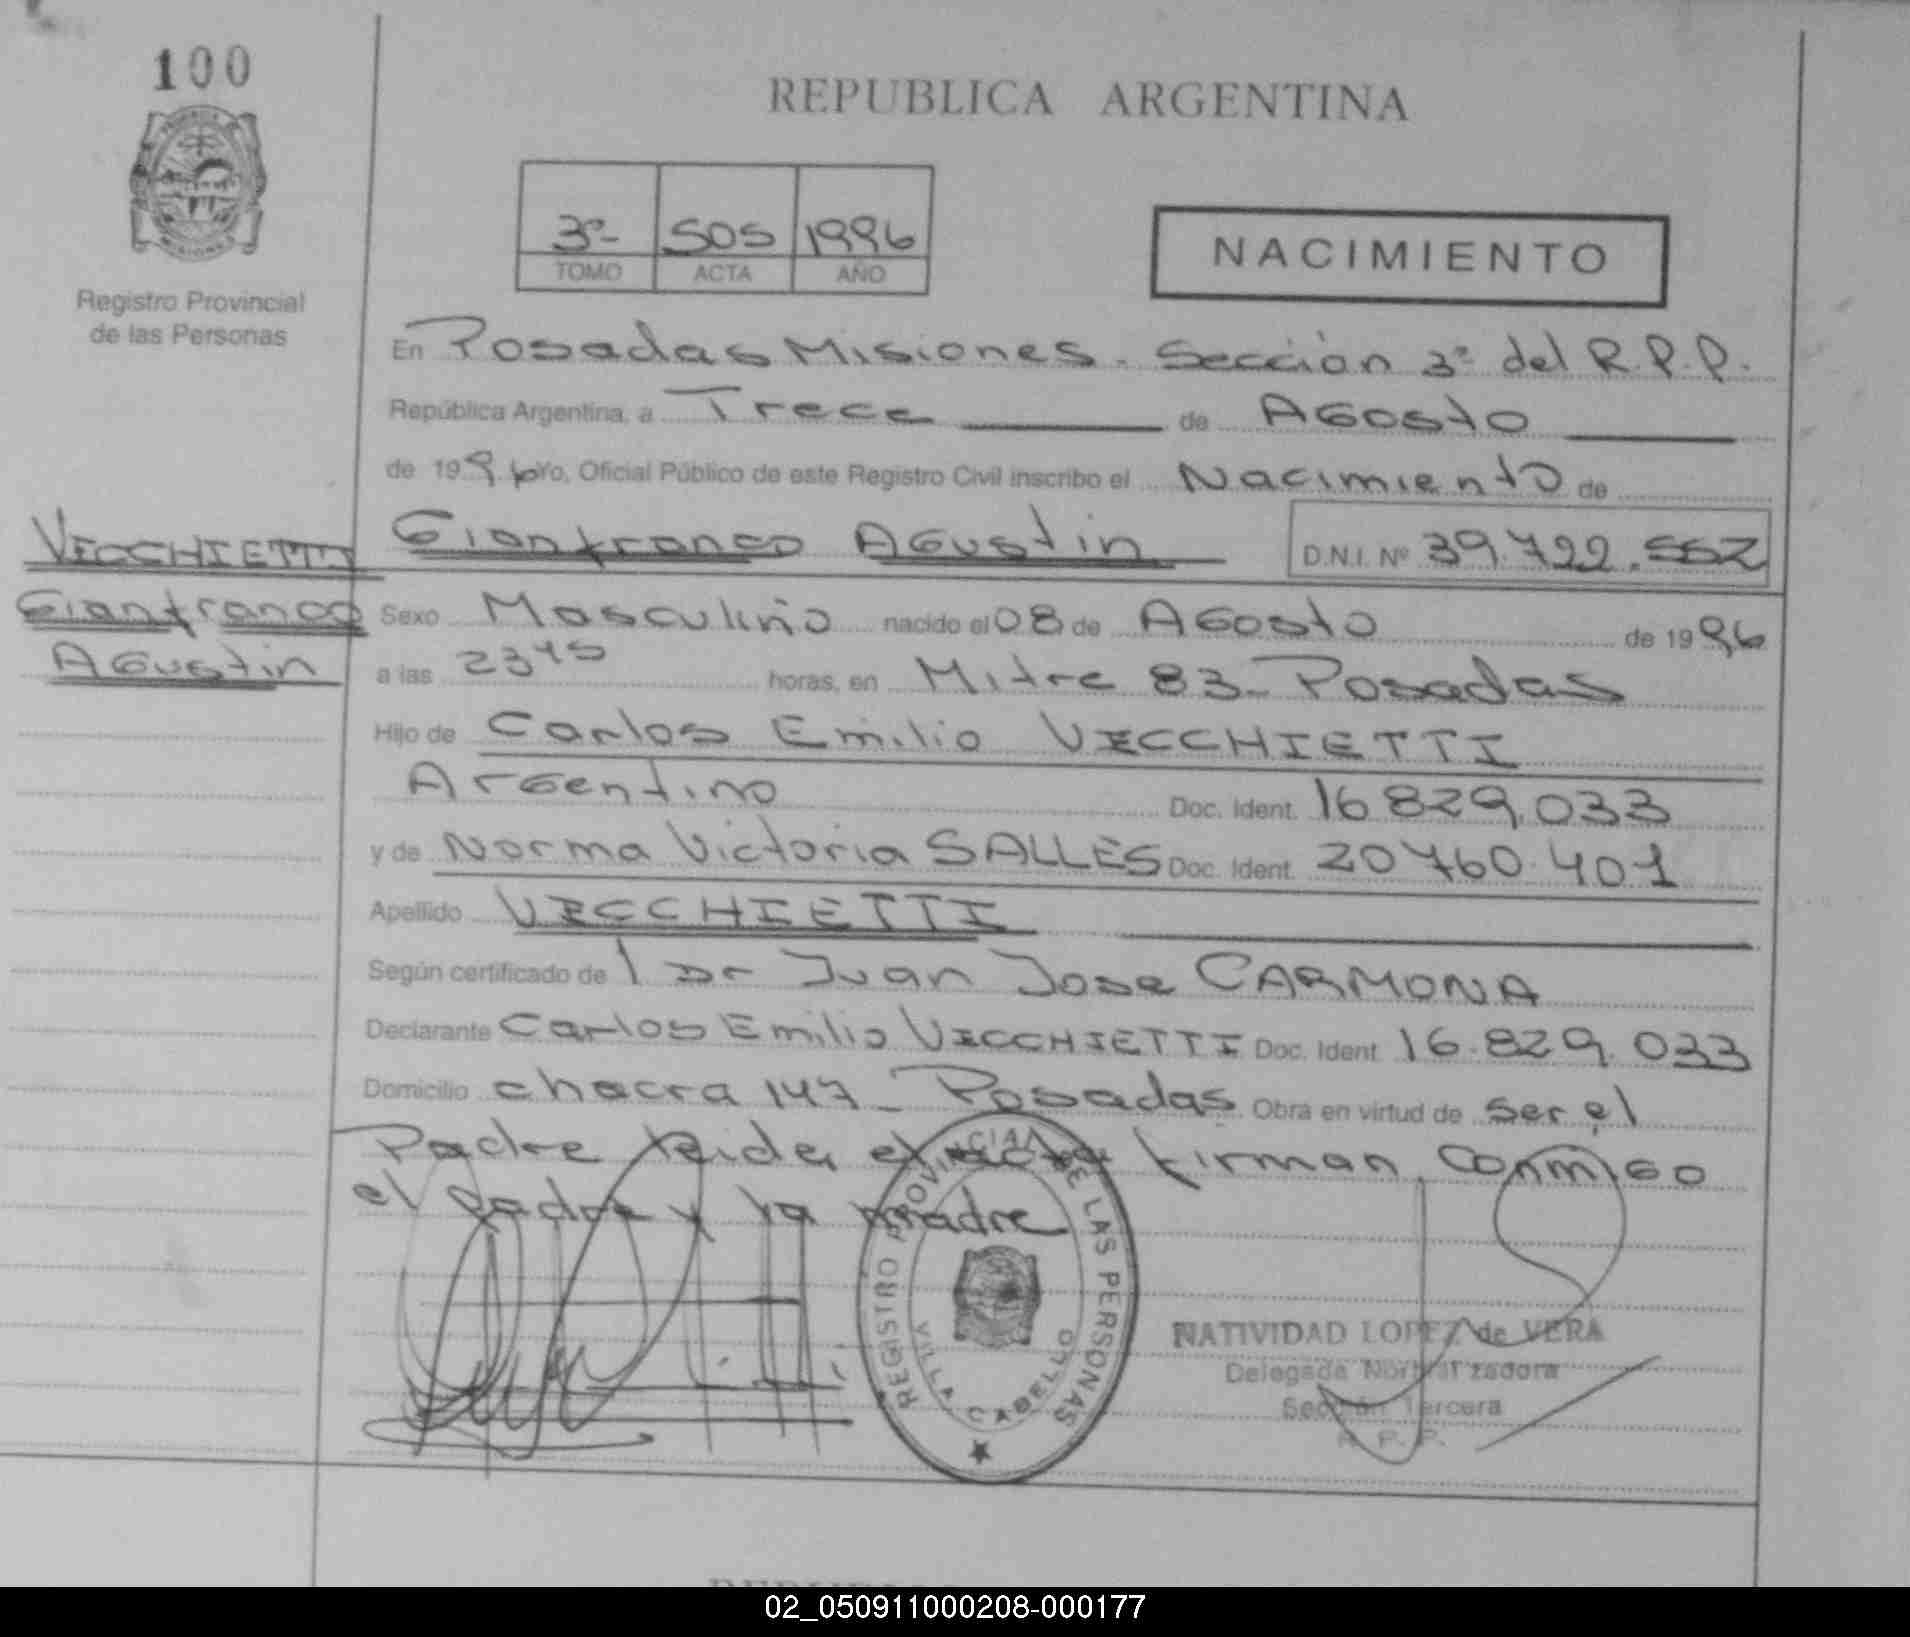 100
REPUBLICA ARGENTINA
3º- 505 1996
TOMO ACTA AÑO
NACIMIENTO
Registro Provincial
de las Personas
En Posadas Misiones. Sección 3º del R.P.P.
República Argentina, a Trece de Agosto
de 1996 Yo, Oficial Público de este Registro Civil inscribo el Nacimiento de
VECCHIETTI Gianfranco Agustin D.N.I. Nº 39.722.552
Gianfranco
Agustin
Sexo Masculino nacido el 08 de Agosto de 1996
a las 23 45 horas, en Mitre 83- Posadas
Hijo de Carlos Emilio VECCHIETTI
Argentino Doc. Ident. 16829.033
y de Norma Victoria SALLES Doc. Ident. 20760.401
Apellido VECCHIETTI
Según certificado de l Dr Juan Jose CARMONA
Declarante Carlos Emilio VECCHIETTI Doc. Ident 16.829.033
Domicilio chacra 147- Posadas Obra en virtud de ser el
Padre leida el acta firman conmigo
el padre y la madre
REGISTRO PROVINCIAL DE LAS PERSONAS
VILLA CABELLO
NATIVIDAD LOPEZ de VERA
Delegada Normalizadora
Sección Tercera
R. P. P.
02_050911000208-000177